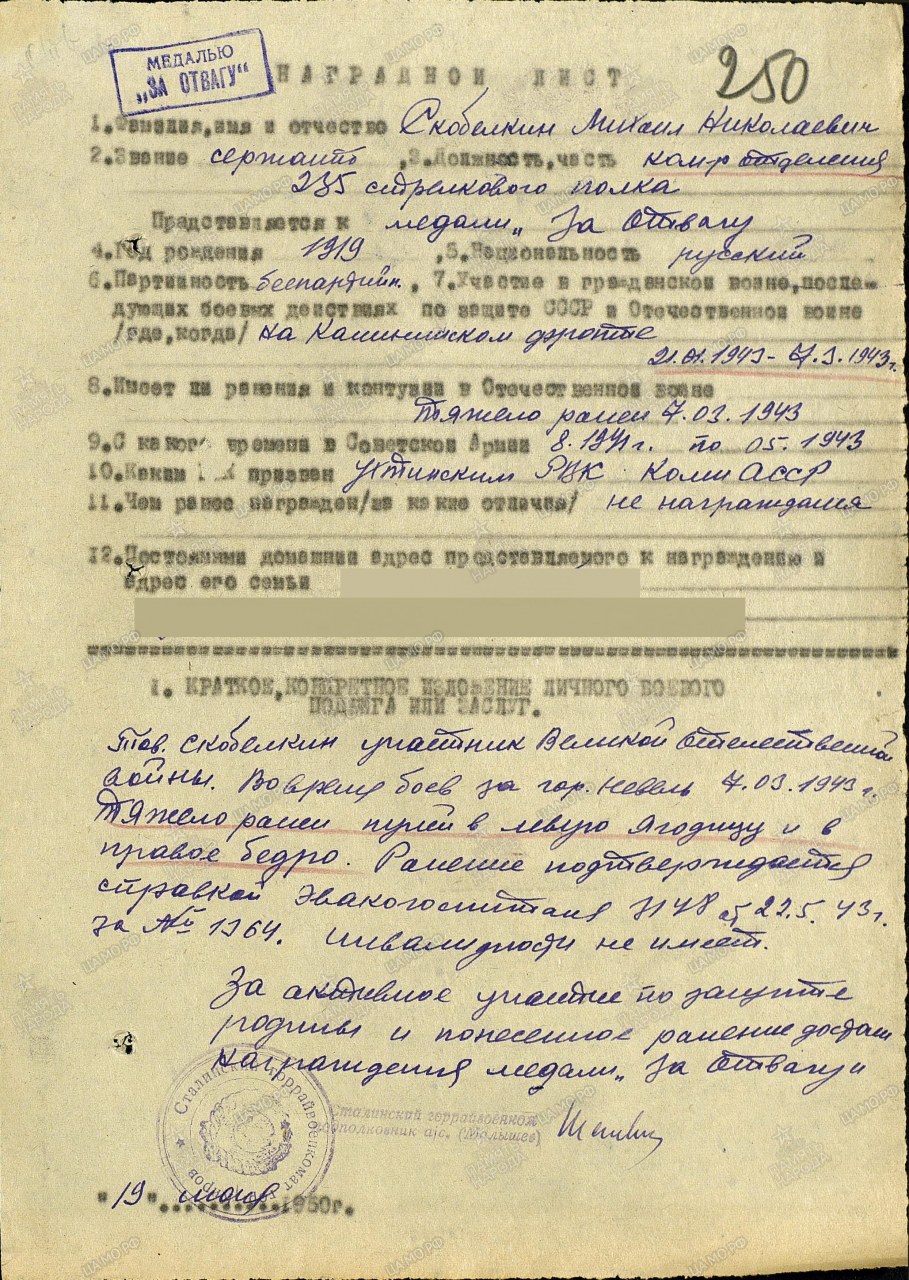 МЕДАЛЬЮ
„ЗА ОТВАГУ“
НАГРАДНОЙ ЛИСТ
250
1.Фамилия,имя и отчество Скобелкин Михаил Николаевич
2.Звание сержант ,3.Должность,часть ком-р отделения
235 стрелкового полка
Представляется к медали „За Отвагу
4.Год рождения 1919 ,5.Национальность русский
6.Партийность беспартийн. , 7.Участие в гражданской войне,после-
дующих боевых действиях по защите СССР и Отечественной войне
/где,когда/ на Калининском фронте
21.01.1943 - 7.3.1943г.
8.Имеет ли ранения и контузии в Отечественной войне
тяжело ранен 7.03.1943
9.С какого времени в Советской Армии 8.1941г. по 05.1943
10.Каким РВК призван Ухтинским РВК Коми АССР
11.Чем ранее награжден/за какие отличия/ не награждался
12.Постоянный домашний адрес представляемого к награждению и
адрес его семьи
I. КРАТКОЕ,КОНКРЕТНОЕ ИЗЛОЖЕНИЕ ЛИЧНОГО БОЕВОГО
ПОДВИГА ИЛИ ЗАСЛУГ.
Тов. Скобелкин участник Великой Отечественной
войны. Во время боев за гор. Невель 7.03.1943г.
Тяжело ранен пулей в левую ягодицу и в
правое бедро. Ранение подтверждается
справкой Эвакогоспиталя 3148 от 22.5.43г.
за № 1364. инвалидности не имеет.
За активное участие по защите
родины и понесенное ранение достоин
награждения медали „За Отвагу"
Сталинский горрайвоенкомат
Сталинский горрайвоенком
подполковник а/с. (Малышев)
"19" июня 1950г.
ЦАМО.РФ